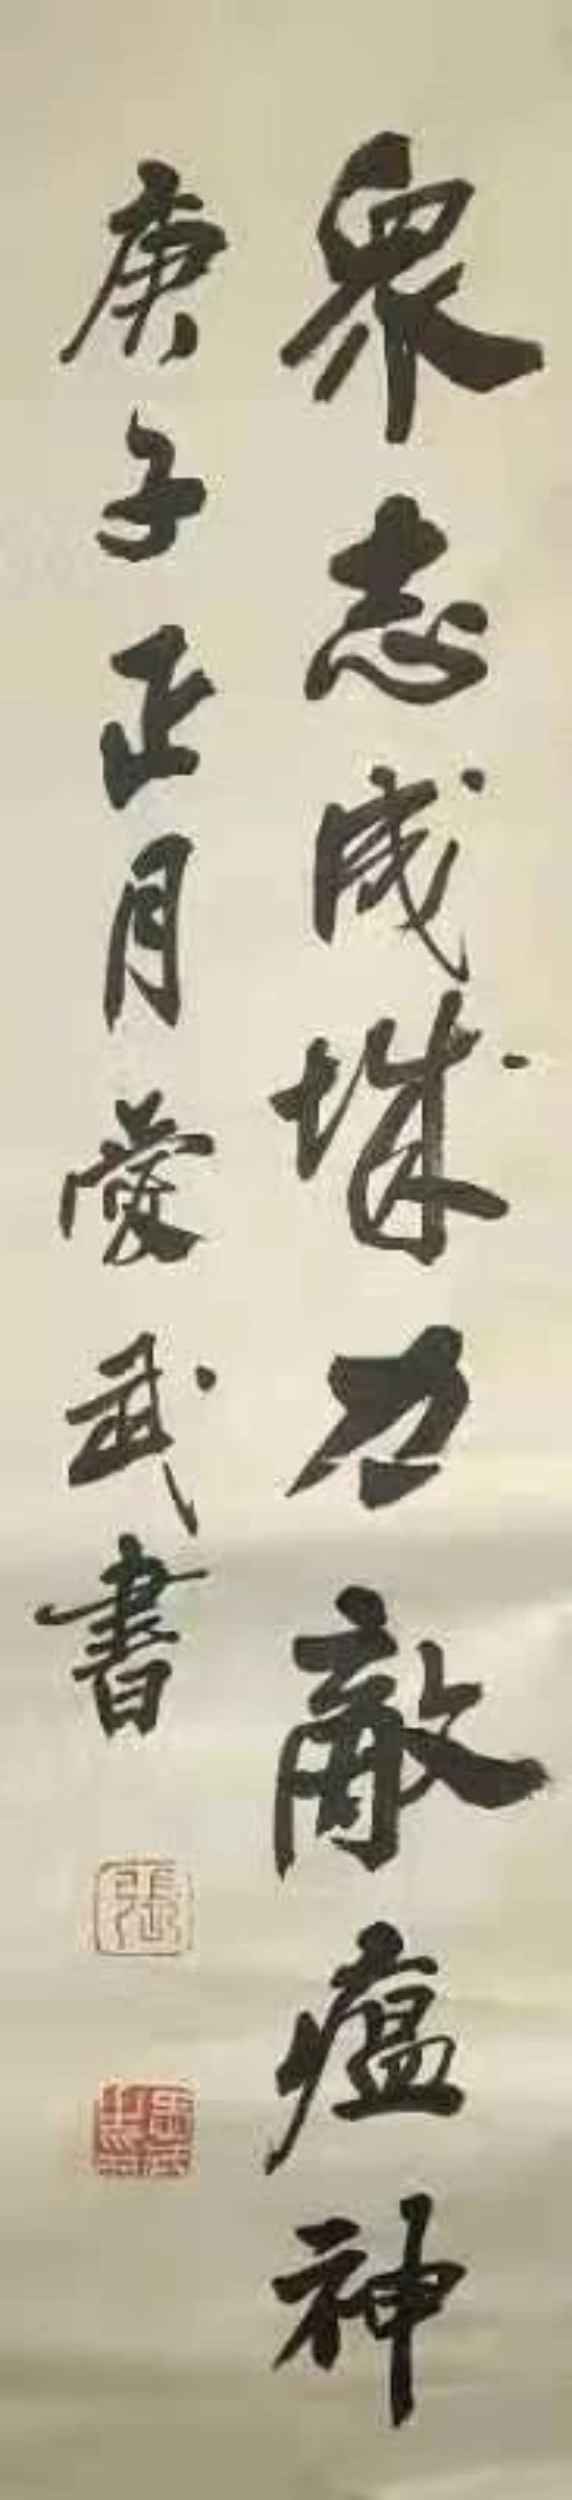 眾志成城力敵瘟神
庚子正月愛武書
張